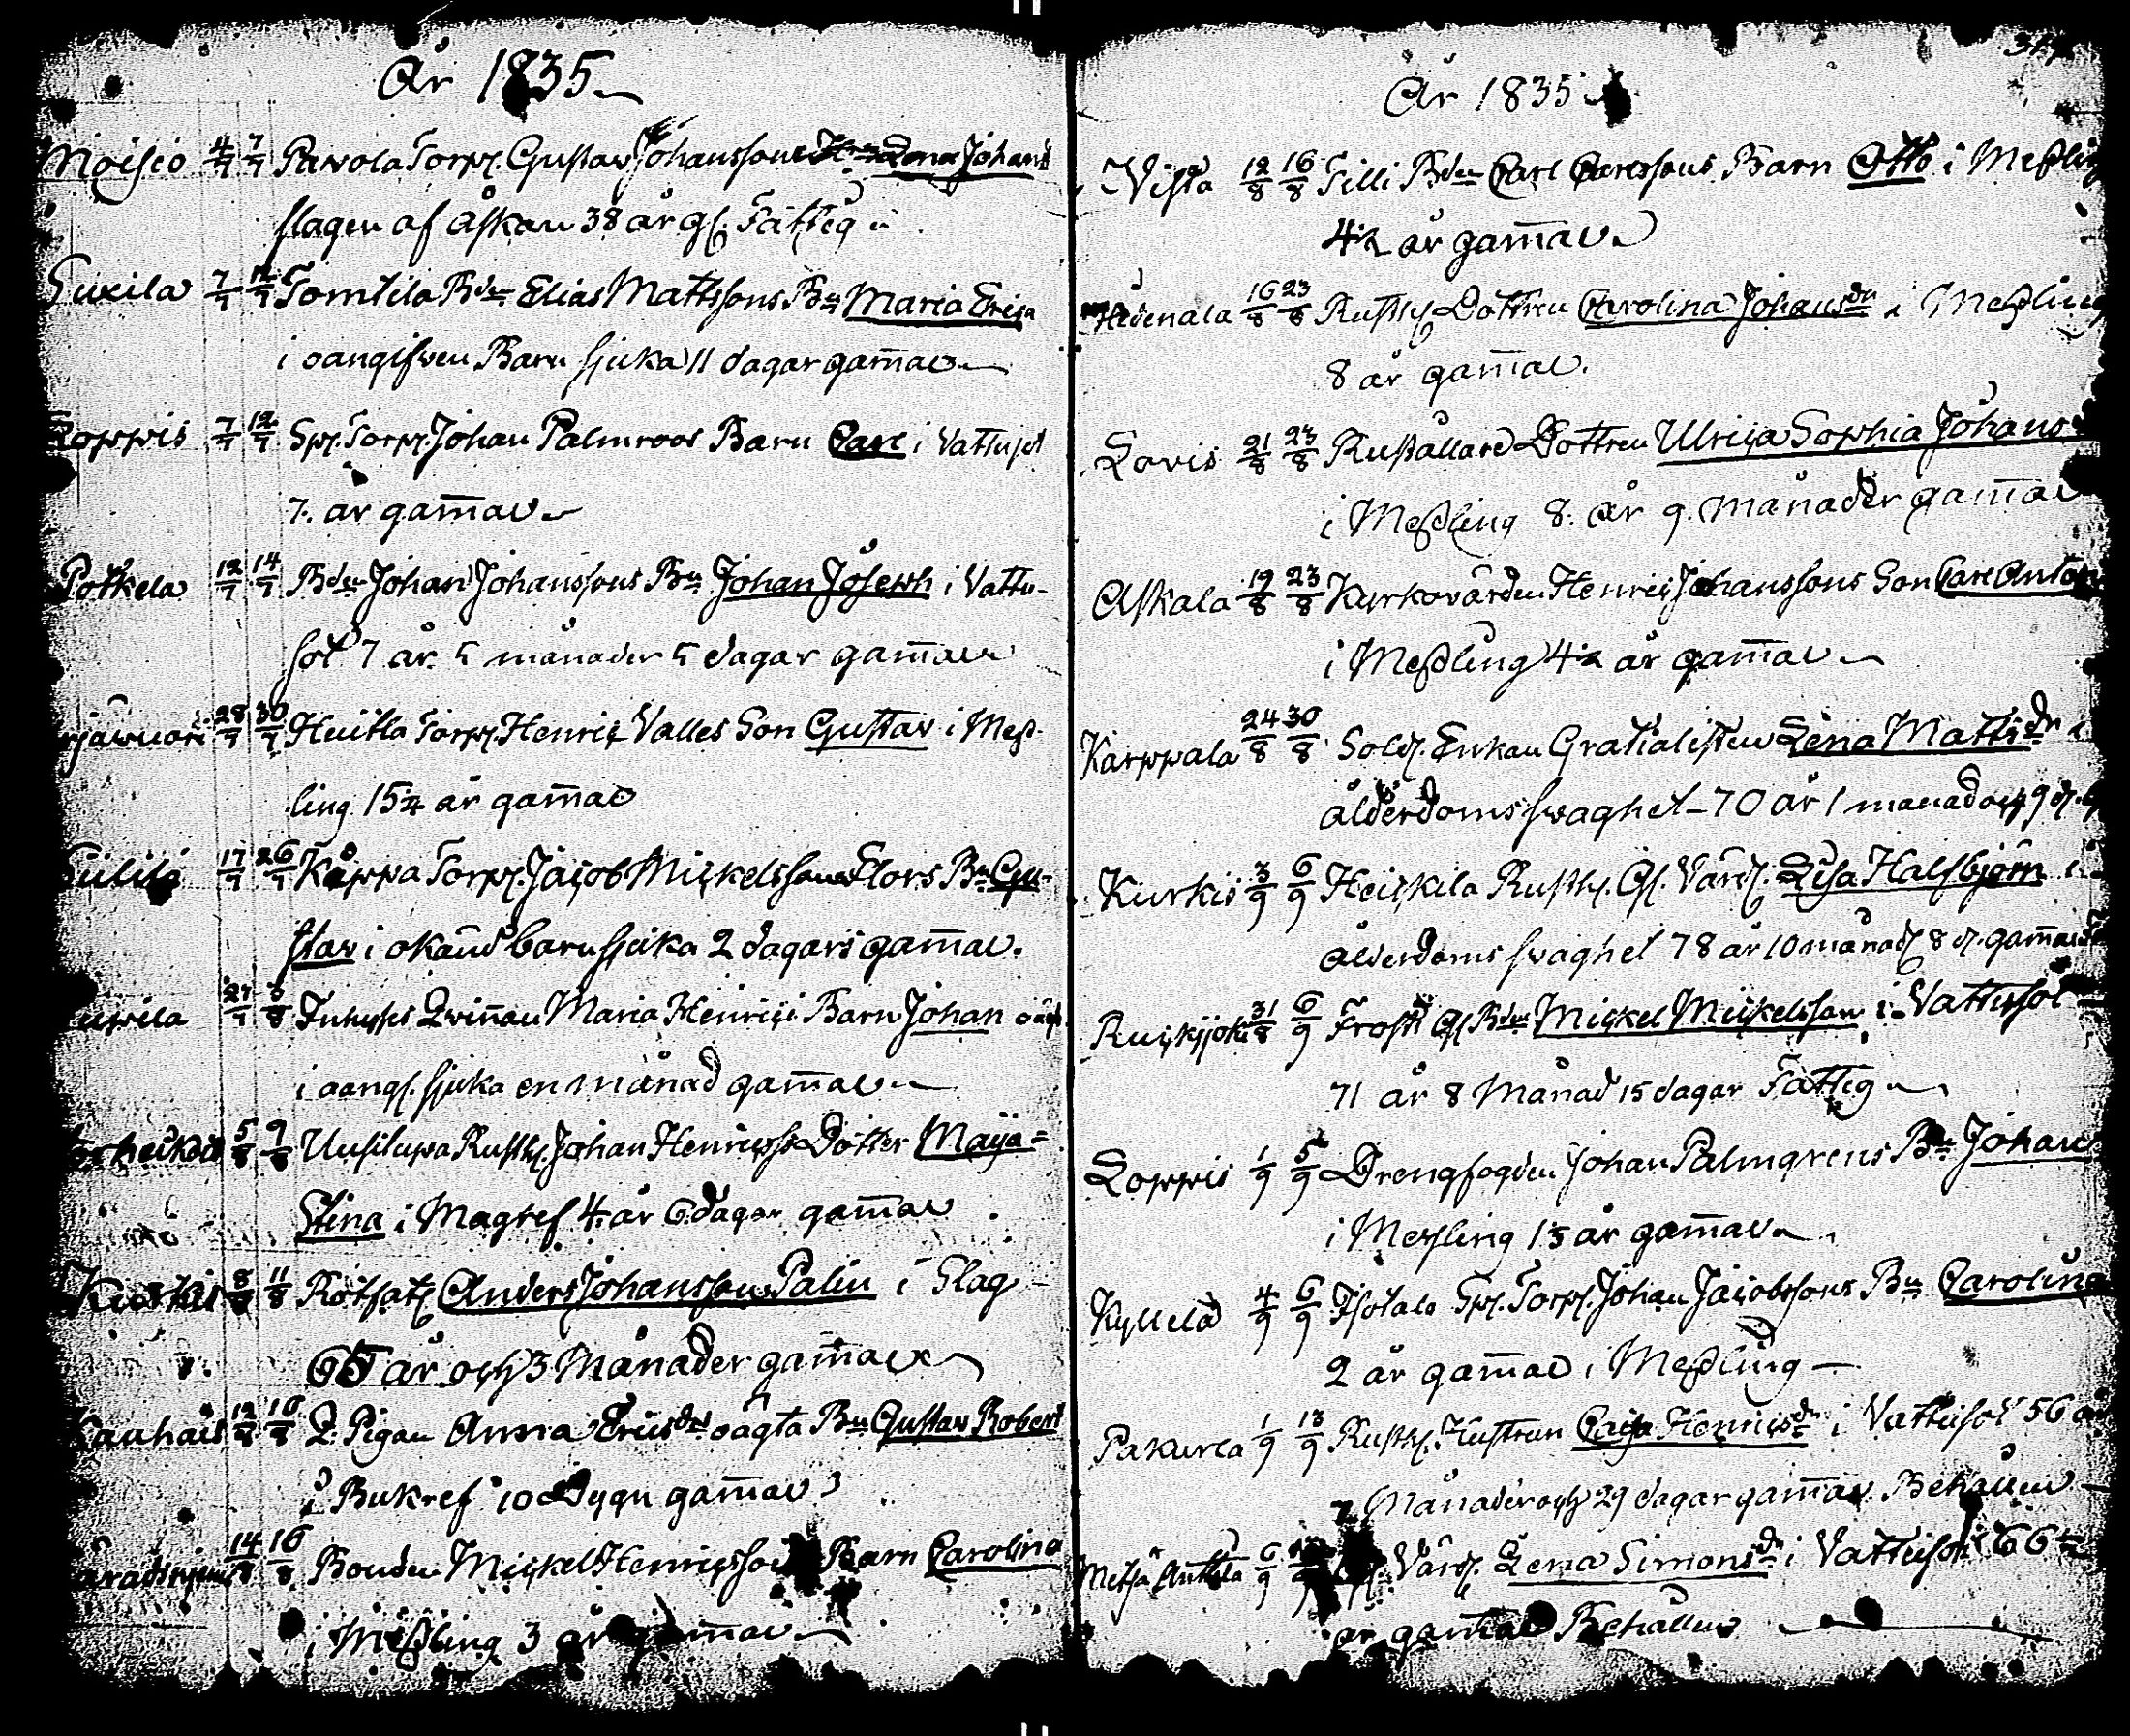 År 1835
Moisio 4/7 7/7 Pavola Torp. Gustav Johanssons Lena Johans
slagen af åskan 38 år gl. Fattig
7/7 12/7 Tomtila Bden Elias Mattssons Bn Maria Erica
i oangifven Barn sjuka 11 dagar gam̄al
Loppis 7/7 12/7 Sps. Torp. Johan Palmroos Barn Carl i Vattusot
7. år gam̄al
Potkela 12/7 14/7 Bden Johan Johanssons Bn Johan Joseph i Vattu-
sot 7 år 5 månader 5 dagar gam̄al
28/7 30/7 Huitla Torp. Henric Valles Son Gustav i Meß-
ling 15 år gam̄al
17/7 26/7 Torp. Jacob Mickelssons Flors Bn Gu-
stav i okänd barnsjuka 2 dagars gam̄al.
27/7 Inhyses Qvin̄an Maria Henrics Barn Johan
i oang. sjuka en månad gam̄al
5/8 9/8 Uusitupa Rusth. Johan Henricss Dotter Maija=
Stina i Magref 4. år 6 dagar gam̄al
8/8 11/8 Rotfat. Anders Johansson Palin i Slag
65 år och 3 Månader gam̄al
12/8 16/8 Q. Pigan Anna Ericsdrs oägta Bn Gustav Robert
i Bukref 10 Dygn gam̄al
14/8 16/8 Bonden Mickel Henricsson Barn Carolina
i Meßling 3 år gam̄al
År 1835
Vista 12/8 16/8 Tilli Bden Carl Carlssons Barn Otto i Meßling
4½ år gam̄al
16/8 23/8 Rusth. Dottren Carolina Johansdr i Meßling
8 år gam̄al.
Lovis 21/8 23/8 Rusthållare Dottren Ulrica Sophia Johans
i Meßling 8. år 9. månader gam̄al
Askala 19/8 23/8 Kyrkovärden Henric Johanssons Son Carl Anton
i Meßling 4½ år gam̄al
Karppala 24/8 30/8 Sold. Enkan Gratialisten Lena Mattsdr i
ålderdoms svaghet - 70 år 1 månad och 9 d.
Kurkis 3/9 6/9 Heickila Rusth. Gl. Värd. Lisa Halfbjörn i
ålderdoms svaghet 78 år 10 månad 8 d. gam̄al
31/8 6/9 Frosti Gl Bden Mickel Mickelsson i Vattusot
71 år 8 Månad 15 dagar Fattig
Loppis 1/9 5/9 Drengfogden Johan Palmgrens Bn Johan
i Meßling 13 år gam̄al
Kyllelä 4/9 6/9 Isotalo Sps. Torp. Johan Jacobssons Bn Carolina
2 år gam̄al i Meßling
Pakurla 1/9 13/9 Rusth. Hustrun Caisa Henricsdr i Vattusot 56 år
7 Månader och 29 dagar gam̄al. Behållen
Metsä 6/9 Värd. Lena Simonsdr i Vattusot 66
år gam̄al Behållen